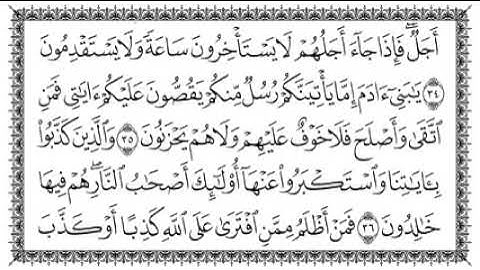 أَجَلٌ ۖ فَإِذَا جَآءَ أَجَلُهُمْ لَا يَسْتَأْخِرُونَ سَاعَةً وَلَا يَسْتَقْدِمُونَ
٣٤ يَٰبَنِىٓ ءَادَمَ إِمَّا يَأْتِيَنَّكُمْ رُسُلٌ مِّنكُمْ يَقُصُّونَ عَلَيْكُمْ ءَايَٰتِى فَمَنِ
ٱتَّقَىٰ وَأَصْلَحَ فَلَا خَوْفٌ عَلَيْهِمْ وَلَا هُمْ يَحْزَنُونَ ٣٥ وَٱلَّذِينَ كَذَّبُوا۟
بِـَٔايَٰتِنَا وَٱسْتَكْبَرُوا۟ عَنْهَآ أُو۟لَٰٓئِكَ أَصْحَٰبُ ٱلنَّارِ ۖ هُمْ فِيهَا
خَٰلِدُونَ ٣٦ فَمَنْ أَظْلَمُ مِمَّنِ ٱفْتَرَىٰ عَلَى ٱللَّهِ كَذِبًا أَوْ كَذَّبَ